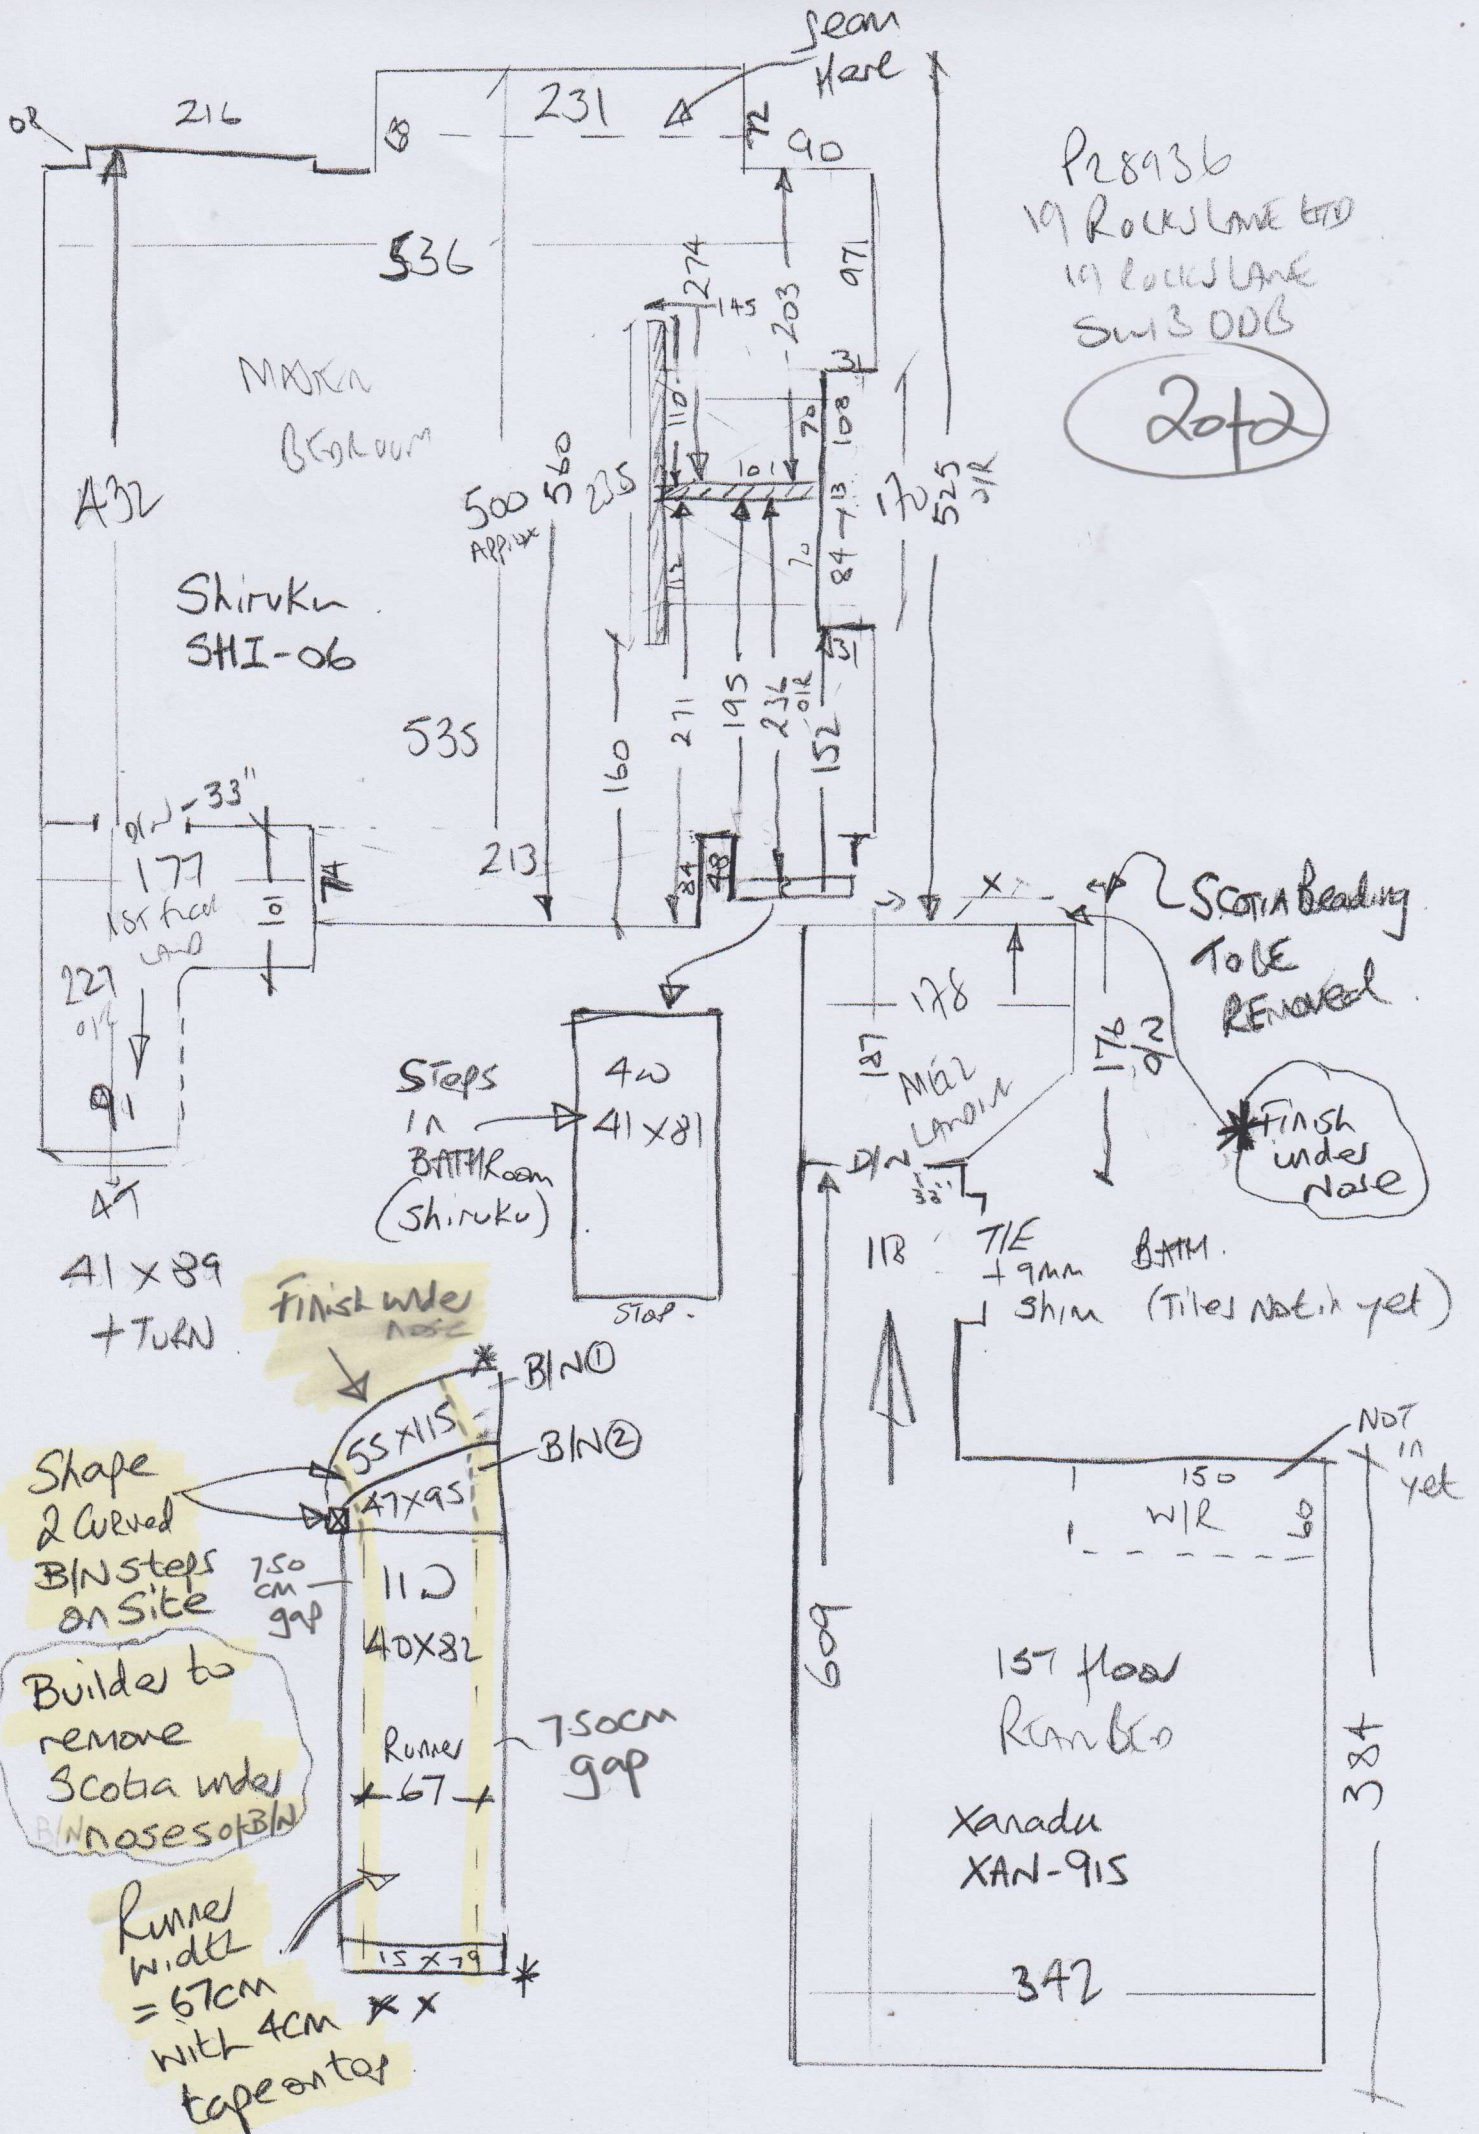 Seam
Here
216
231
72
90
P28936
19 ROCKS LANE LTD
19 ROCKS LANE
SW13 0DB
2 of 2
536
274
145
203
971
MASTER
BEDROOM
432
500
APPROX
560
235
110
101
70
108
13
84
70
112
170
525
O/R
Shiruku
SHI-06
535
160
271
195
236
O/R
152
213
84
48
D/N - 33"
177
1ST FLOOR
LAND
101
74
227
O/R
91
4T
41 x 89
+ TURN
Steps
in
BATHRoom
(Shiruku)
4W
41 x 81
Stop.
X
SCOTIA Beading
TO BE
REMOVED.
178
187
MEZZ
LANDIN
176
D/N
33"
Finish
under
Nose
118
T/E
+ 9mm
Shim
BATH.
(Tiles Not in yet)
Finish under
nose
B/N ①
B/N ②
55 x 115
47 x 95
Shape
2 Curved
B/N Steps
on Site
7.50
cm
gap
40 x 82
Runner
67
7.50cm
gap
Builder to
remove
Scotia under
noses of B/N
Runner
width
= 67cm
with 4cm
tape on top
15 x 79
x x
NOT
in
yet
150
W/R
60
609
1ST floor
REAR BED
384
Xanadu
XAN-915
342